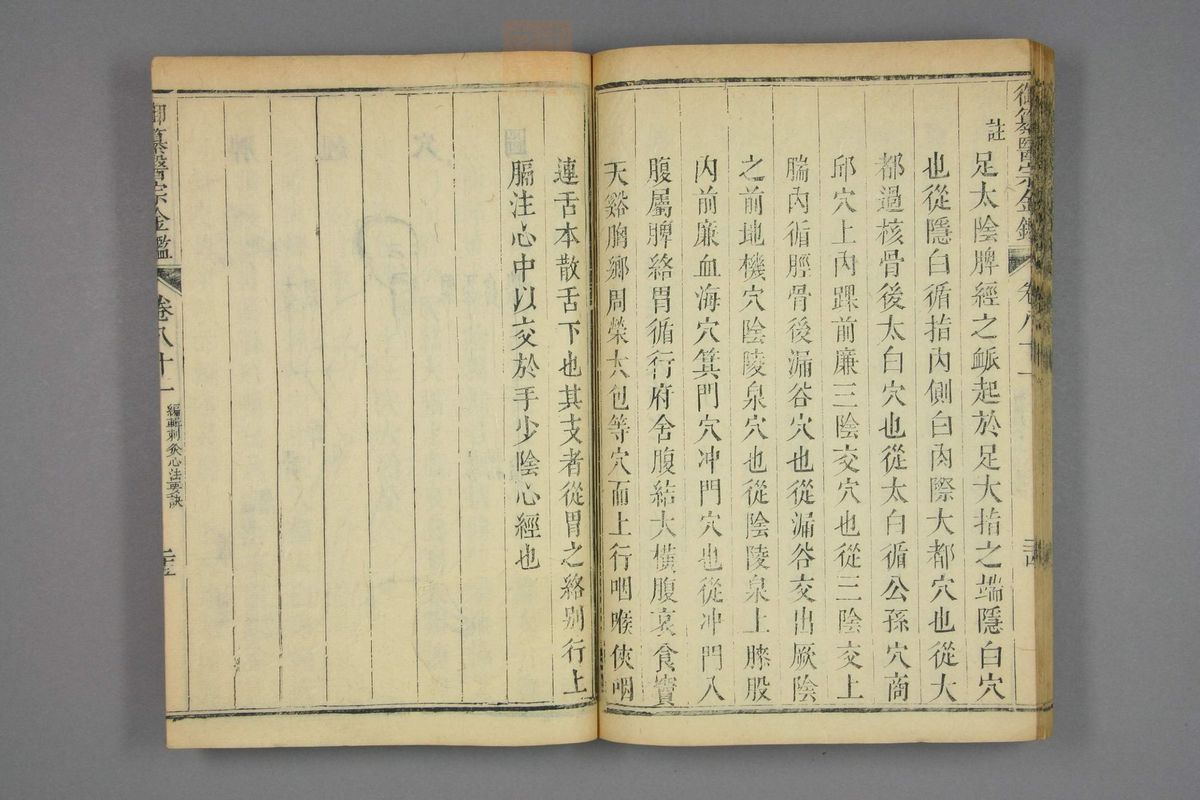 御纂醫宗金鑑
卷八十一
註
足太陰脾經之脈起於足大指之端隱白穴
也從隱白循指內側白肉際大都穴也從大
都過核骨後太白穴也從太白循公孫穴商
邱穴上內踝前廉三陰交穴也從三陰交上
腨內循脛骨後漏谷穴也從漏谷交出厥陰
之前地機穴陰陵泉穴也從陰陵泉上膝股
內前廉血海穴箕門穴冲門穴也從冲門入
腹屬脾絡胃循行府舍腹結大橫腹哀食竇
天谿胸鄉周榮大包等穴而上行咽喉俠咽
連舌本散舌下也其支者從胃之絡別行上
膈注心中以交於手少陰心經也
御纂醫宗金鑑
卷八十一
編輯刺灸心法要訣
二十五